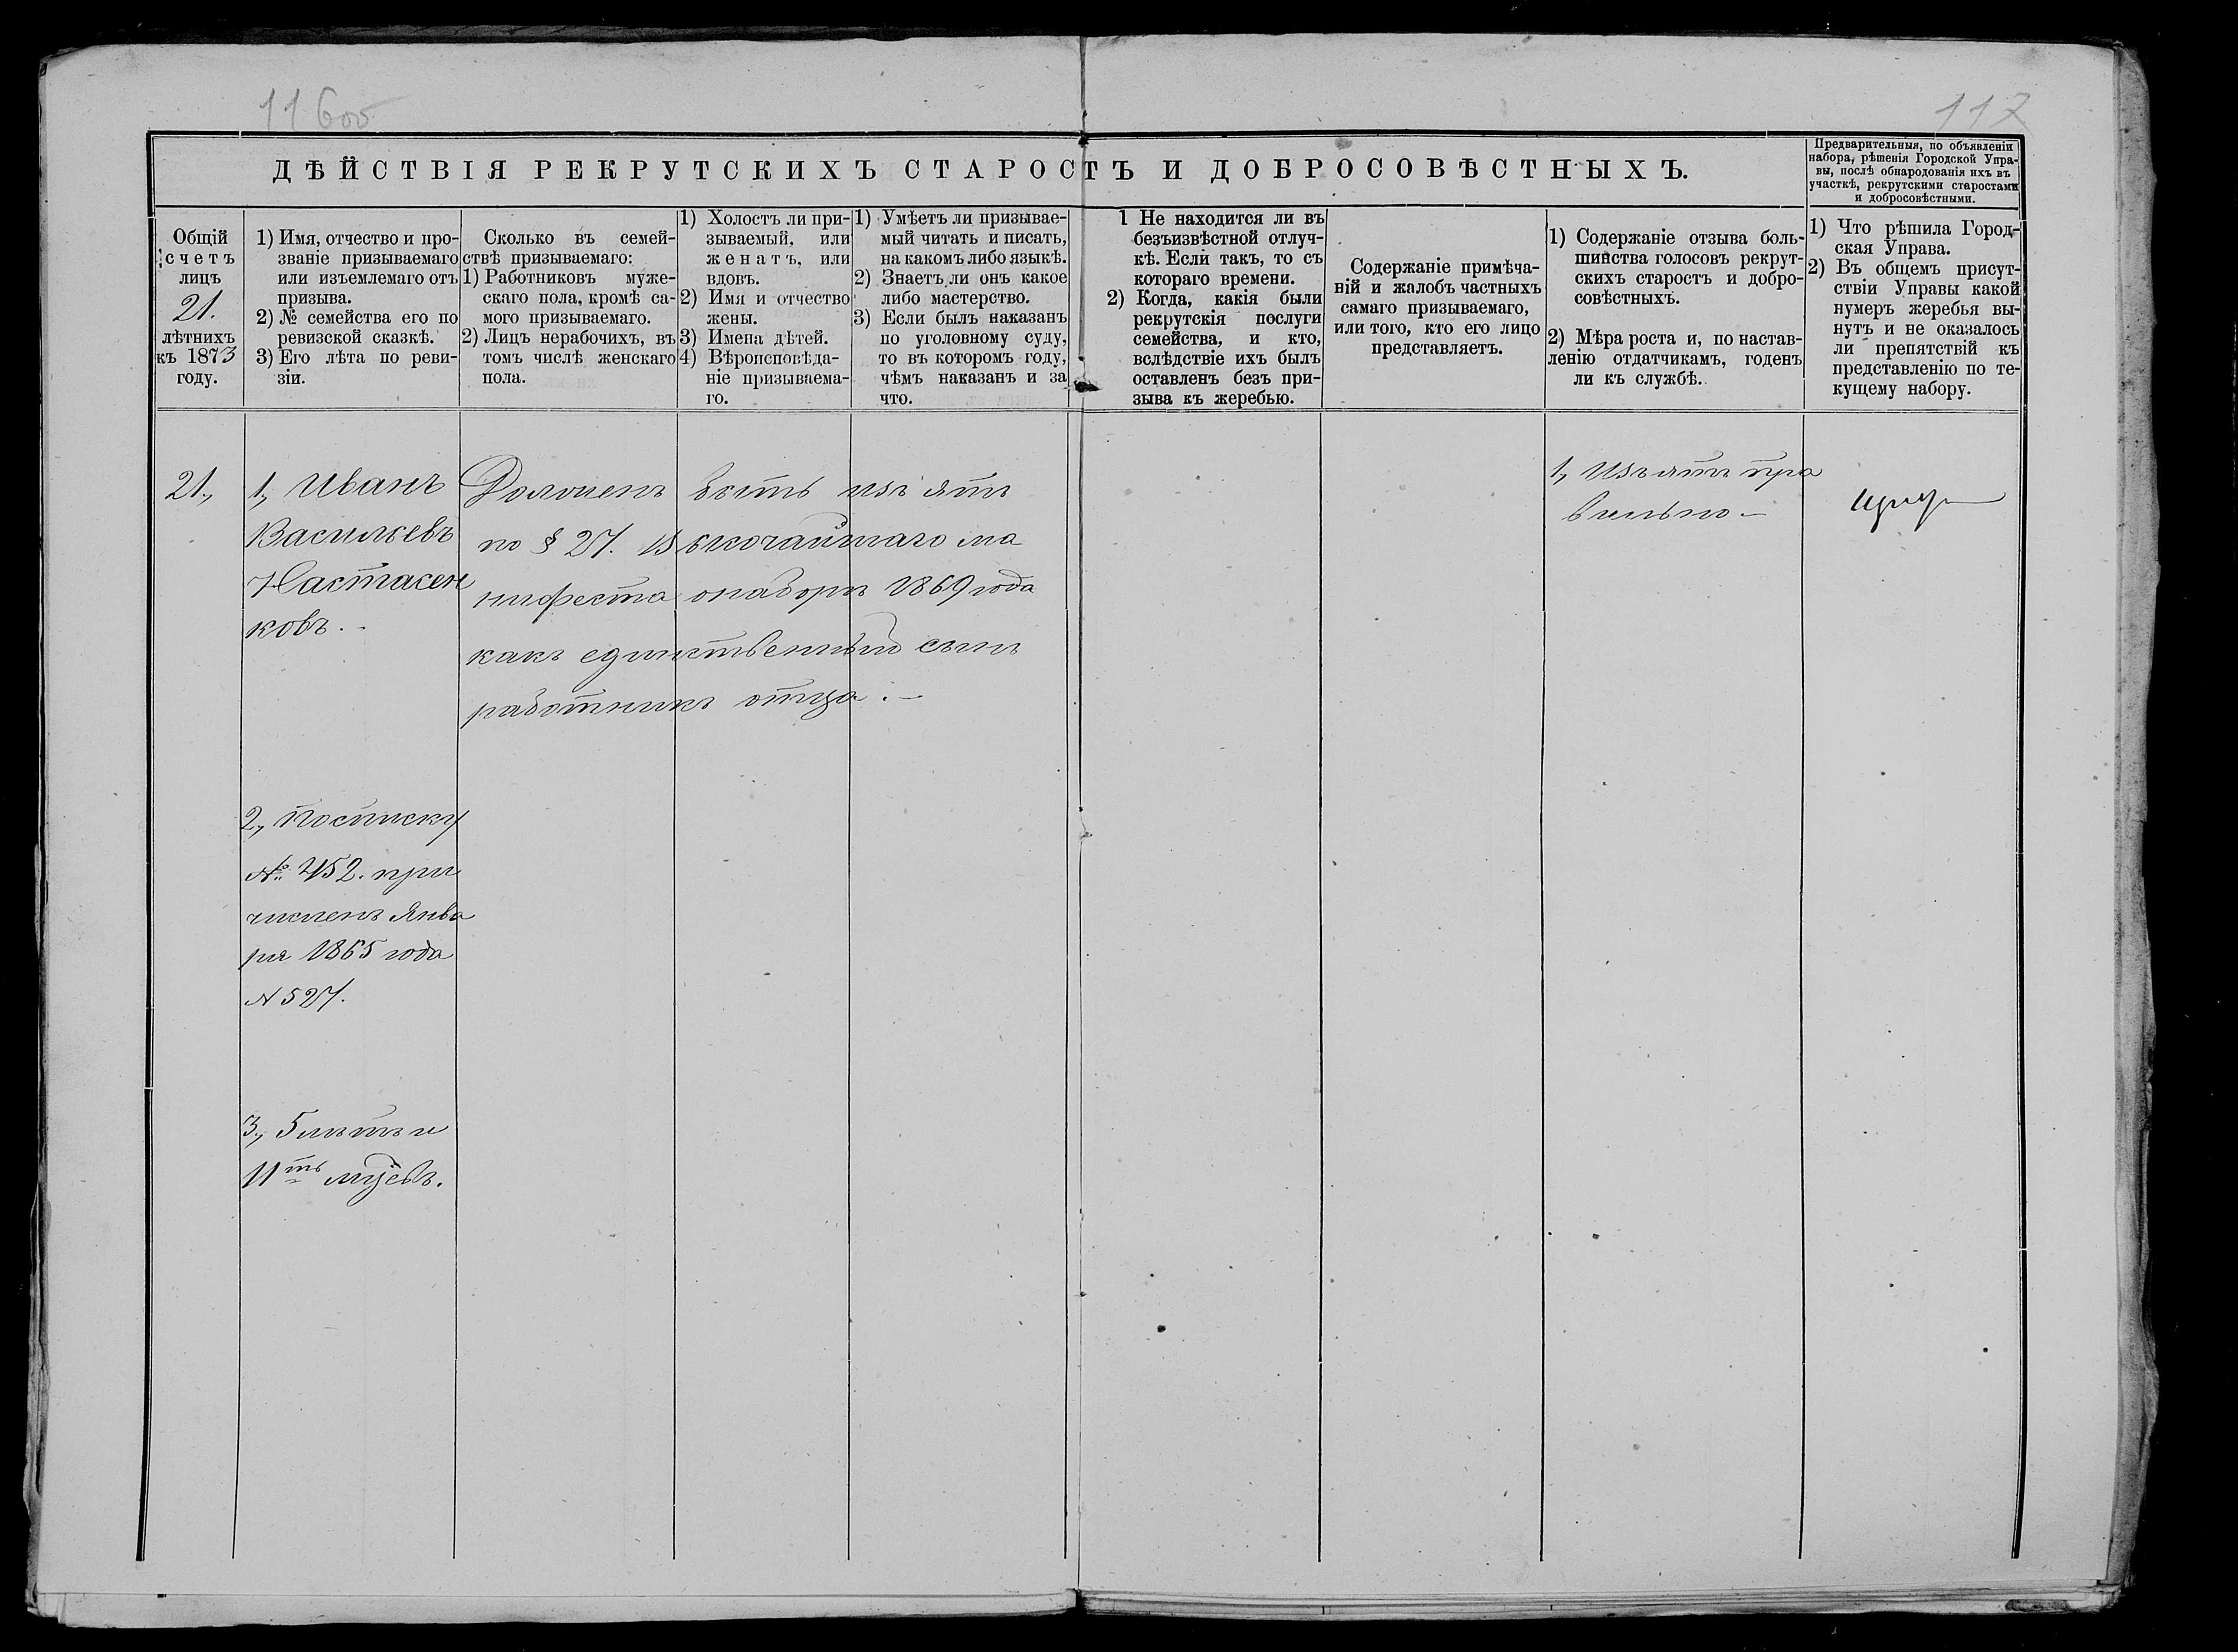 116об
117
ДѢЙСТВІЯ РЕКРУТСКИХЪ СТАРОСТЪ И ДОБРОСОВѢСТНЫХЪ.
Предварительныя, по объявленіи
набора, рѣшенія Городской Упра-
вы, послѣ обнародованія ихъ въ
участкѣ, рекрутскими старостами
и добросовѣстными.
Общій
счетъ
лицъ
21.
лѣтнихъ
къ 1873
году.
1) Имя, отчество и про-
званіе призываемаго
или изъемлемаго отъ
призыва.
2) № семейства его по
ревизской сказкѣ.
3) Его лѣта по реви-
зіи.
Сколько въ семей-
ствѣ призываемаго:
1) Работниковъ муже-
скаго пола, кромѣ са-
мого призываемаго.
2) Лицъ нерабочихъ, въ
томъ числѣ женскаго
пола.
1) Холостъ ли при-
зываемый, или
женатъ, или
вдовъ.
2) Имя и отчество
жены.
3) Имена дѣтей.
4) Вѣроисповѣда-
ніе призываема-
го.
1) Умѣетъ ли призывае-
мый читать и писать,
на какомъ либо языкѣ.
2) Знаетъ ли онъ какое
либо мастерство.
3) Если былъ наказанъ
по уголовному суду,
то въ которомъ году,
чѣмъ наказанъ и за
что.
1 Не находится ли въ
безъизвѣстной отлуч-
кѣ. Если такъ, то съ
котораго времени.
2) Когда, какія были
рекрутскія послуги
семейства, и кто,
вслѣдствіе ихъ былъ
оставленъ безъ при-
зыва къ жеребью.
Содержаніе примѣча-
ній и жалобъ частныхъ
самаго призываемаго,
или того, кто его лицо
представляетъ.
1) Содержаніе отзыва боль-
шинства голосовъ рекрут-
скихъ старостъ и добро-
совѣстныхъ.
2) Мѣра роста и, по настав-
ленію отдатчикамъ, годенъ
ли къ службѣ.
1) Что рѣшила Город-
ская Управа.
2) Въ общемъ присут-
ствіи Управы какой
нумеръ жеребья вы-
нутъ и не оказалось
ли препятствій къ
представленію по те-
кущему набору.
21.,
1., Иванъ
Васильевъ
Настасен
ковъ.
2., по списку
№ 452. при
численъ Янва
ря 1865 года
№ 527.
3., 5 лѣтъ и
11ть мцевъ.
Долженъ быть изъятъ
по § 27. Высочайшаго ма
нифеста о наборѣ 1869 года
какъ единственный сынъ
работникъ отца.
1., Изъятъ пра
вильно